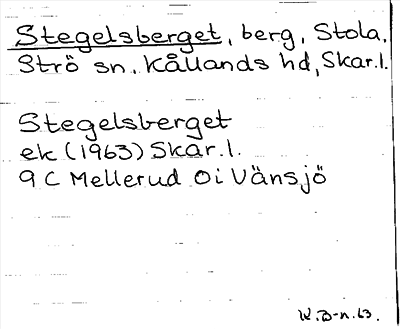 Stegelsberget, berg, Stola,
Strö sn. Kållands hd, Skar.l.
Stegelsberget
ek (1963) Skar.l.
9 C Mellerud Oi Vänsjö
W.B-n.63.